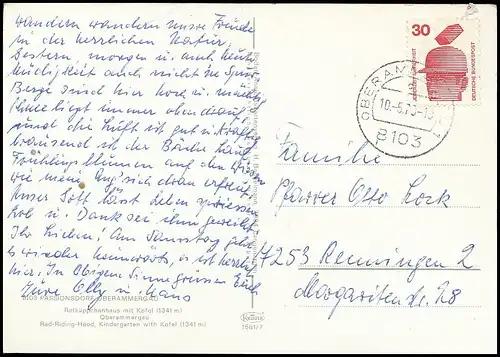 wandern wandern unsre Freude
in der herrlichen Natur,
Gestern, morgen u. auch heute
auch nicht
Berge sind hier hoch u. mächtig
Schnee liegt immer obendrauf
und die Luft ist gut u.
brausend ist der Bäche Lauf
Frühlingsblumen auf den Wiesen
wie mein Aug' sich dran erfreut,
Unser Gott lässt Leben spriessen
Lob u. Dank sei ihm geweiht
Ihr Lieben! Am Samstag geht
es wieder heimwärts, es ist herrlich
hier. In obigem Sinne grüssen Euch
Eure Elly u. Hans
8103 PASSIONSDORF OBERAMMERGAU
Rotkäppchenhaus mit Kofel (1341 m)
Oberammergau
Red-Riding-Hood, Kindergarten with Kofel (1341 m)
1561/7
30
DEUTSCHE BUNDESPOST
8103
Familie
Pfarrer Otto Lock
7253 Renningen 2
Margaretenstr. 28